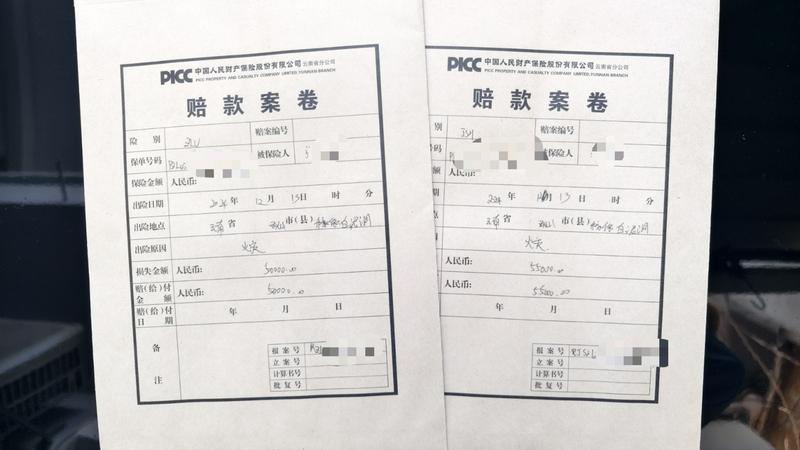 PICC 中国人民财产保险股份有限公司云南省分公司
PICC PROPERTY AND CASUALTY COMPANY LIMITED,YUNNAN BRANCH
赔款案卷
险别 ZLU 赔案编号
保单号码 被保险人
保险金额 人民币:
出险日期 2024年 12月 13日 时 分
出险地点 云南省 市(县)
出险原因 火灾
损失金额 人民币: 50000.00
赔(给)付金额 人民币: 50000.00
赔(给)付日期 年 月 日
备注
报案号
立案号
计算书号
批复号
PICC 中国人民财产保险股份有限公司云南省分公司
PICC PROPERTY AND CASUALTY COMPANY LIMITED,YUNNAN BRANCH
赔款案卷
别 JSH 赔案编号
号码 被保险人
额 人民币:
期 2024年 月 13日 时 分
点 云南省 市(县)
因 火灾
额 人民币: 55000.00
付额 人民币: 55000.00
付期 年 月 日
报案号
立案号
计算书号
批复号